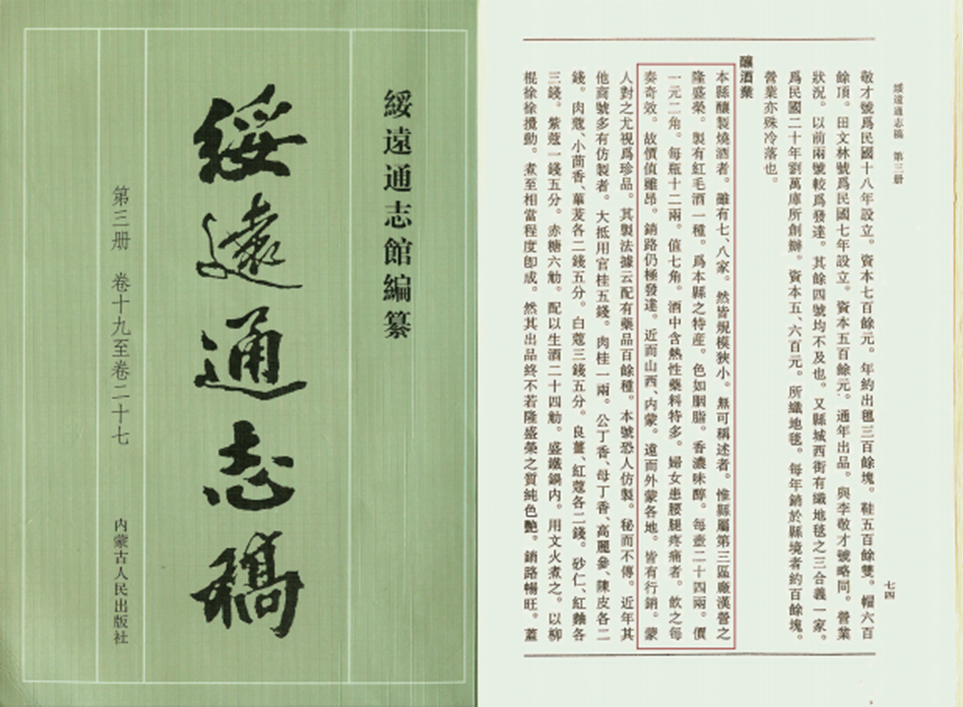 綏遠通志館編纂
綏遠通志稿
第三册 卷十九至卷二十七
内蒙古人民出版社
綏遠通志稿 第三册
七四
敬才號爲民國十八年設立。資本七百餘元。年約出毯三百餘塊。鞋五百餘雙。帽六百
餘頂。田文林號爲民國七年設立。資本五百餘元。通年出品。與李敬才號略同。營業
狀况。以前兩號較爲發達。其餘四號均不及也。又縣城西街有織地毯之三合義一家。
爲民國二十年劉萬庫所創辦。資本五、六百元。所織地毯。每年銷於縣境者約百餘塊。
營業亦殊冷落也。
釀酒業
本縣釀製燒酒者。雖有七、八家。然皆規模狹小。無可稱述者。惟縣屬第三區廠漢營之
隆盛榮。製有紅毛酒一種。爲本縣之特産。色如胭脂。香濃味醇。每壺二十四兩。價
一元二角。每瓶十二兩。值七角。酒中含熱性藥料特多。婦女患腰腿疼痛者。飲之每
奏奇效。故價值雖昂。銷路仍極發達。近而山西、内蒙。遠而外蒙各地。皆有行銷。蒙
人對之尤視爲珍品。其製法據云配有藥品百餘種。本號恐人仿製。秘而不傳。近年其
他商號多有仿製者。大抵用官桂五錢。肉桂一兩。公丁香、母丁香、高麗參、陳皮各二
錢。肉蔻、小茴香、蓽茇各二錢五分。白蔻三錢五分。良薑、紅蔻各二錢。砂仁、紅麯各
三錢。紫蔻一錢五分。赤糖六觔。配以生酒二十四觔。盛鐵鍋内。用文火煮之。以柳
棍徐徐攪動。煮至相當程度卽成。然其出品終不若隆盛榮之質純色艷。銷路暢旺。蓋